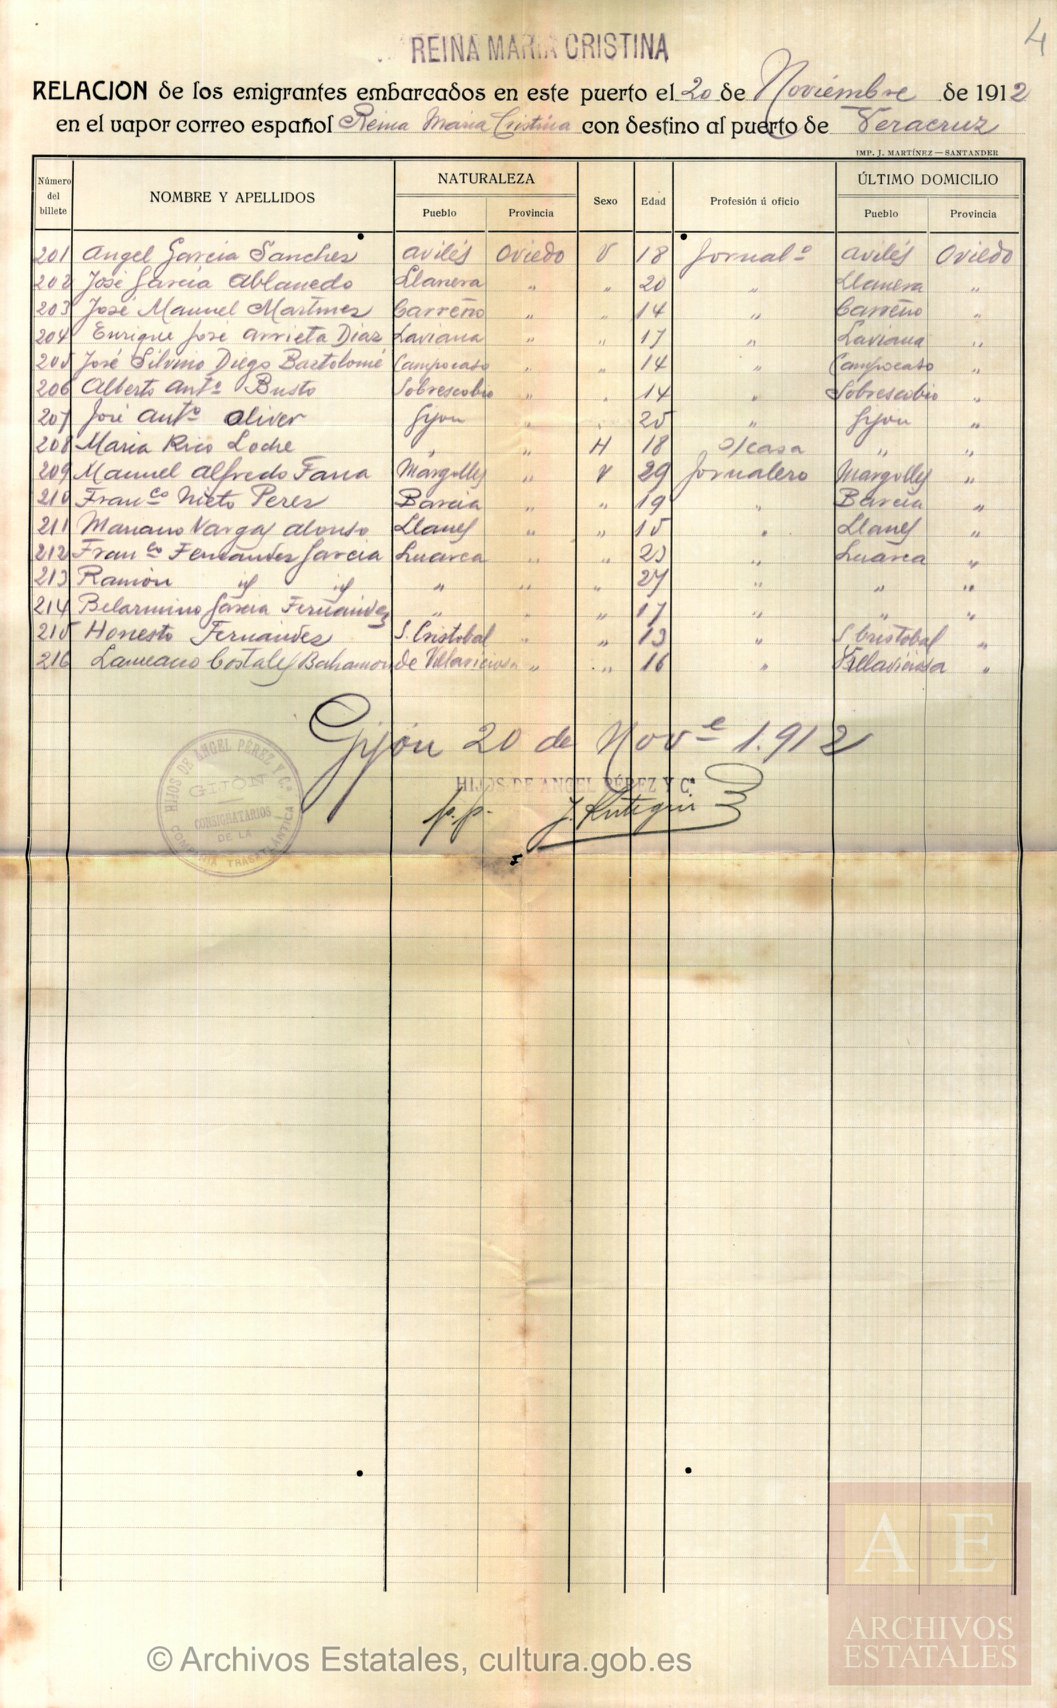 4
REINA MARIA CRISTINA
RELACION de los emigrantes embarcados en este puerto el 20 de Noviembre de 1912
en el vapor correo español Reina Maria Cristina con destino al puerto de Veracruz
IMP. J. MARTÍNEZ — SANTANDER
Número del billete NOMBRE Y APELLIDOS NATURALEZA Pueblo Provincia Sexo Edad Profesión ú oficio ÚLTIMO DOMICILIO Pueblo Provincia
201 Angel Garcia Sanchez Avilés Oviedo V 18 Jornal.º Avilés Oviedo
202 José Garcia Ablanedo Llanera " " 20 " Llanera "
203 José Manuel Martinez Carreño " " 14 " Carreño "
204 Enrique José Arrieta Diaz Laviana " " 17 " Laviana "
205 José Silvino Diego Bartolomé Campocaso " " 14 " Campocaso "
206 Alberto Antº Busto Sobrescobio " " 14 " Sobrescobio "
207 José Antº Oliver Gijon " " 25 " Gijon "
208 Maria Rico Loche " " H 18 s/casa " "
209 Manuel Alfredo Fana Margolles " V 29 Jornalero Margolles "
210 Franco Nieto Perez Barcia " " 19 " Barcia "
211 Mariano Vargas Alonso Llanes " " 15 " Llanes "
212 Franco Fernandez Garcia Luarca " " 23 " Luarca "
213 Ramón id id " " " 27 " " "
214 Belarmino Garcia Fernández " " " 17 " " "
215 Honesto Fernández S. Cristobal " " 13 " S. Cristobal "
216 Laureano Costales Bahamonde Villaviciosa " " 16 " Villaviciosa "
Gijón 20 de Nov.e 1.912
HIJOS DE ANGEL PÉREZ Y C.ª
p.p.
HIJOS DE ANGEL PÉREZ Y C.ª
GIJÓN
CONSIGNATARIOS
DE LA
COMPAÑIA TRASATLÁNTICA
AE
ARCHIVOS
ESTATALES
© Archivos Estatales, cultura.gob.es